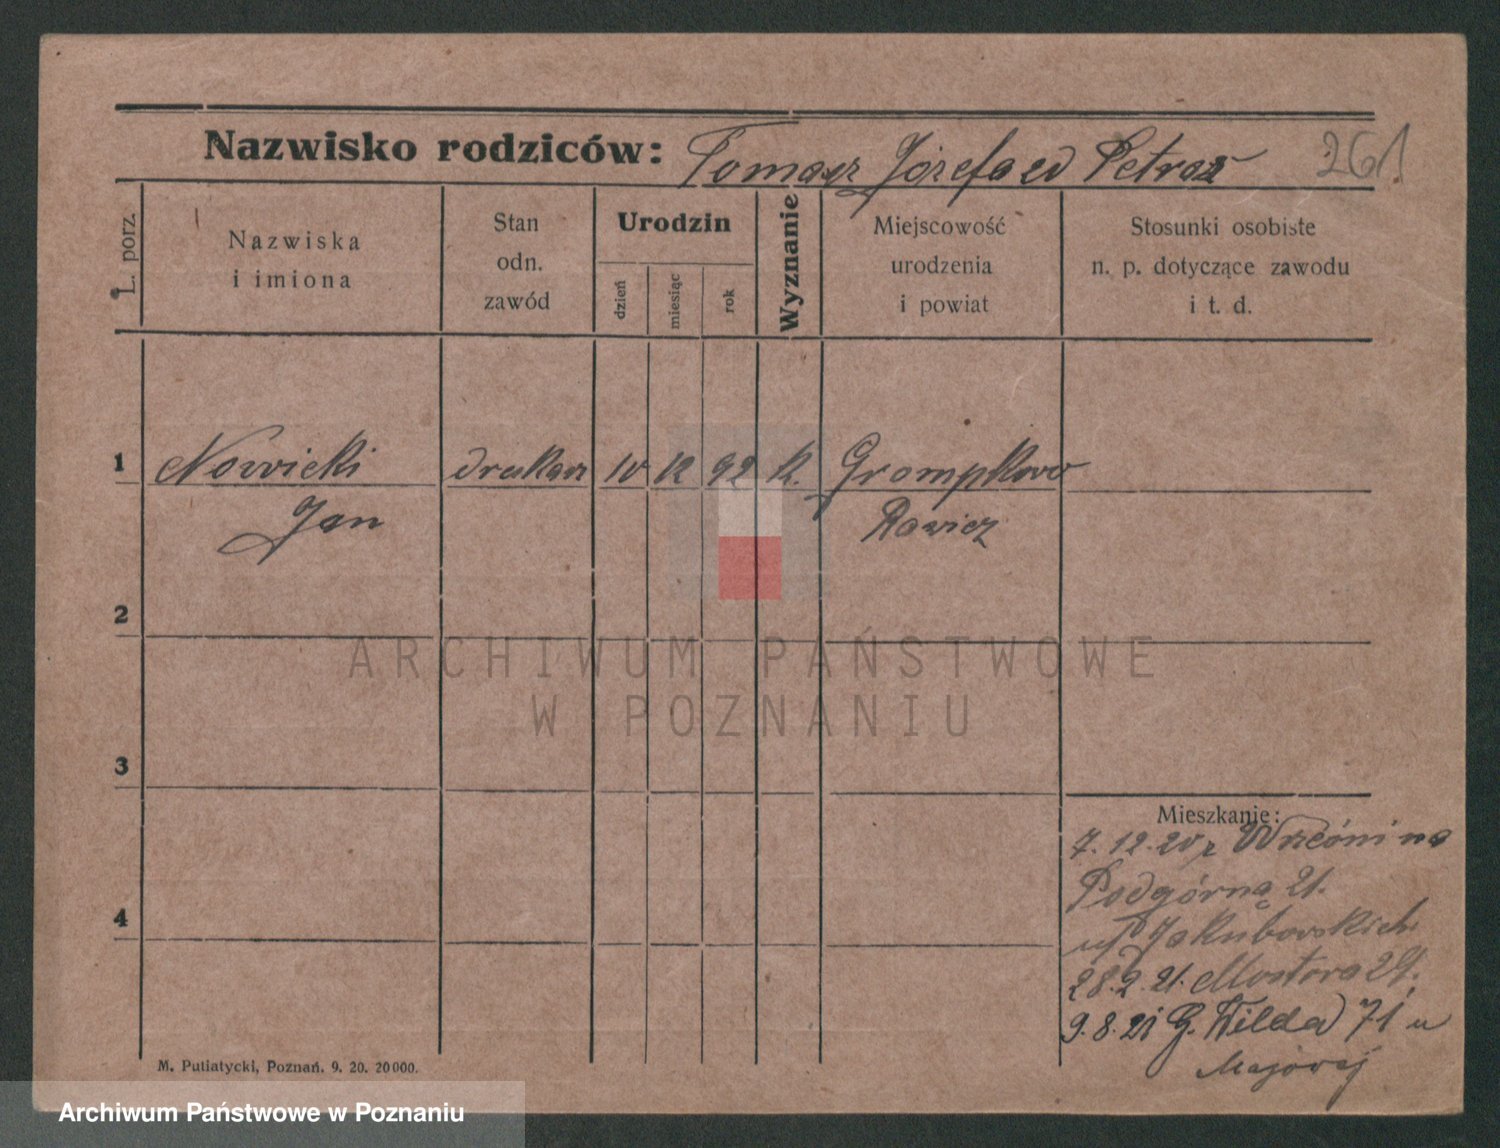 Nazwisko rodziców: Tomasz Józefa zd Petraś
261
L. porz.
Nazwiska
i imiona
Stan
odn.
zawód
Urodzin
dzień
miesiąc
rok
Wyznanie
Miejscowość
urodzenia
i powiat
Stosunki osobiste
n. p. dotyczące zawodu
i t. d.
1 Nowicki drukarz 10 12 92 k. Grompkowo
Jan Rawicz
2
3
4
ARCHIWUM PAŃSTWOWE
W POZNANIU
Mieszkanie:
7.12.20 z Wrześni na
Podgórną 21.
u Jakubowskich
28.2.21. Mostowa 24.
9.8.21 G. Wilda 71 u
Majowej
M. Putiatycki, Poznań. 9. 20. 20000.
Archiwum Państwowe w Poznaniu